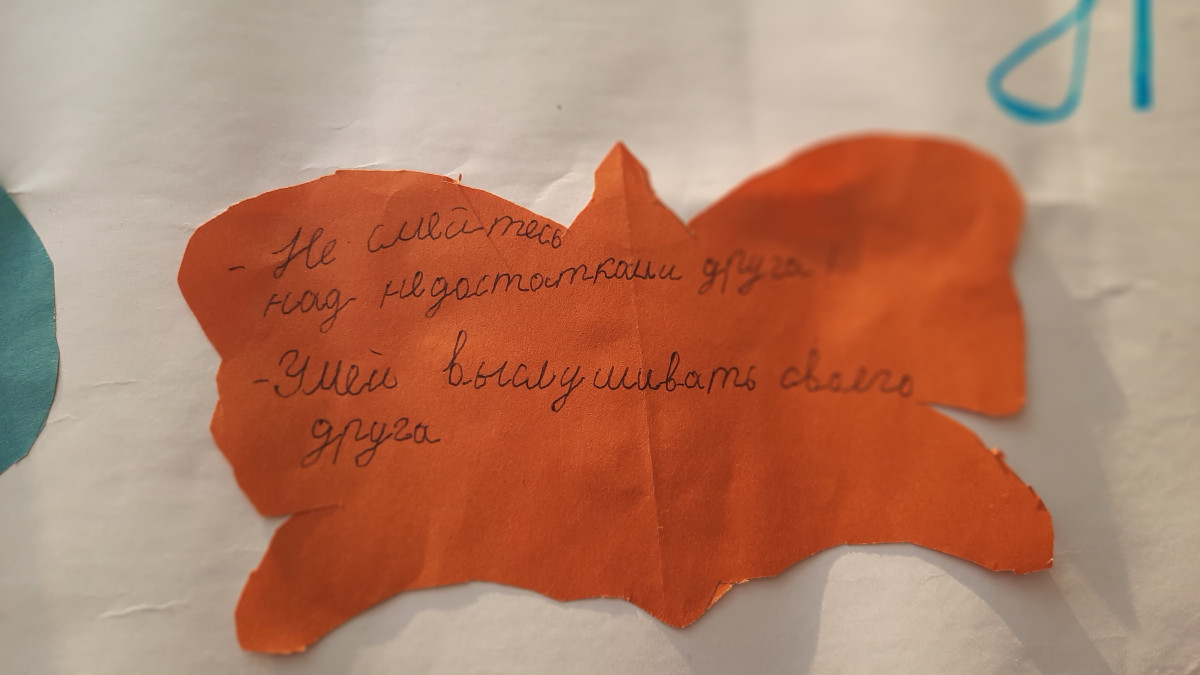 - Не смейтесь
над недостатками друга!
- Умей выслушивать своего
друга